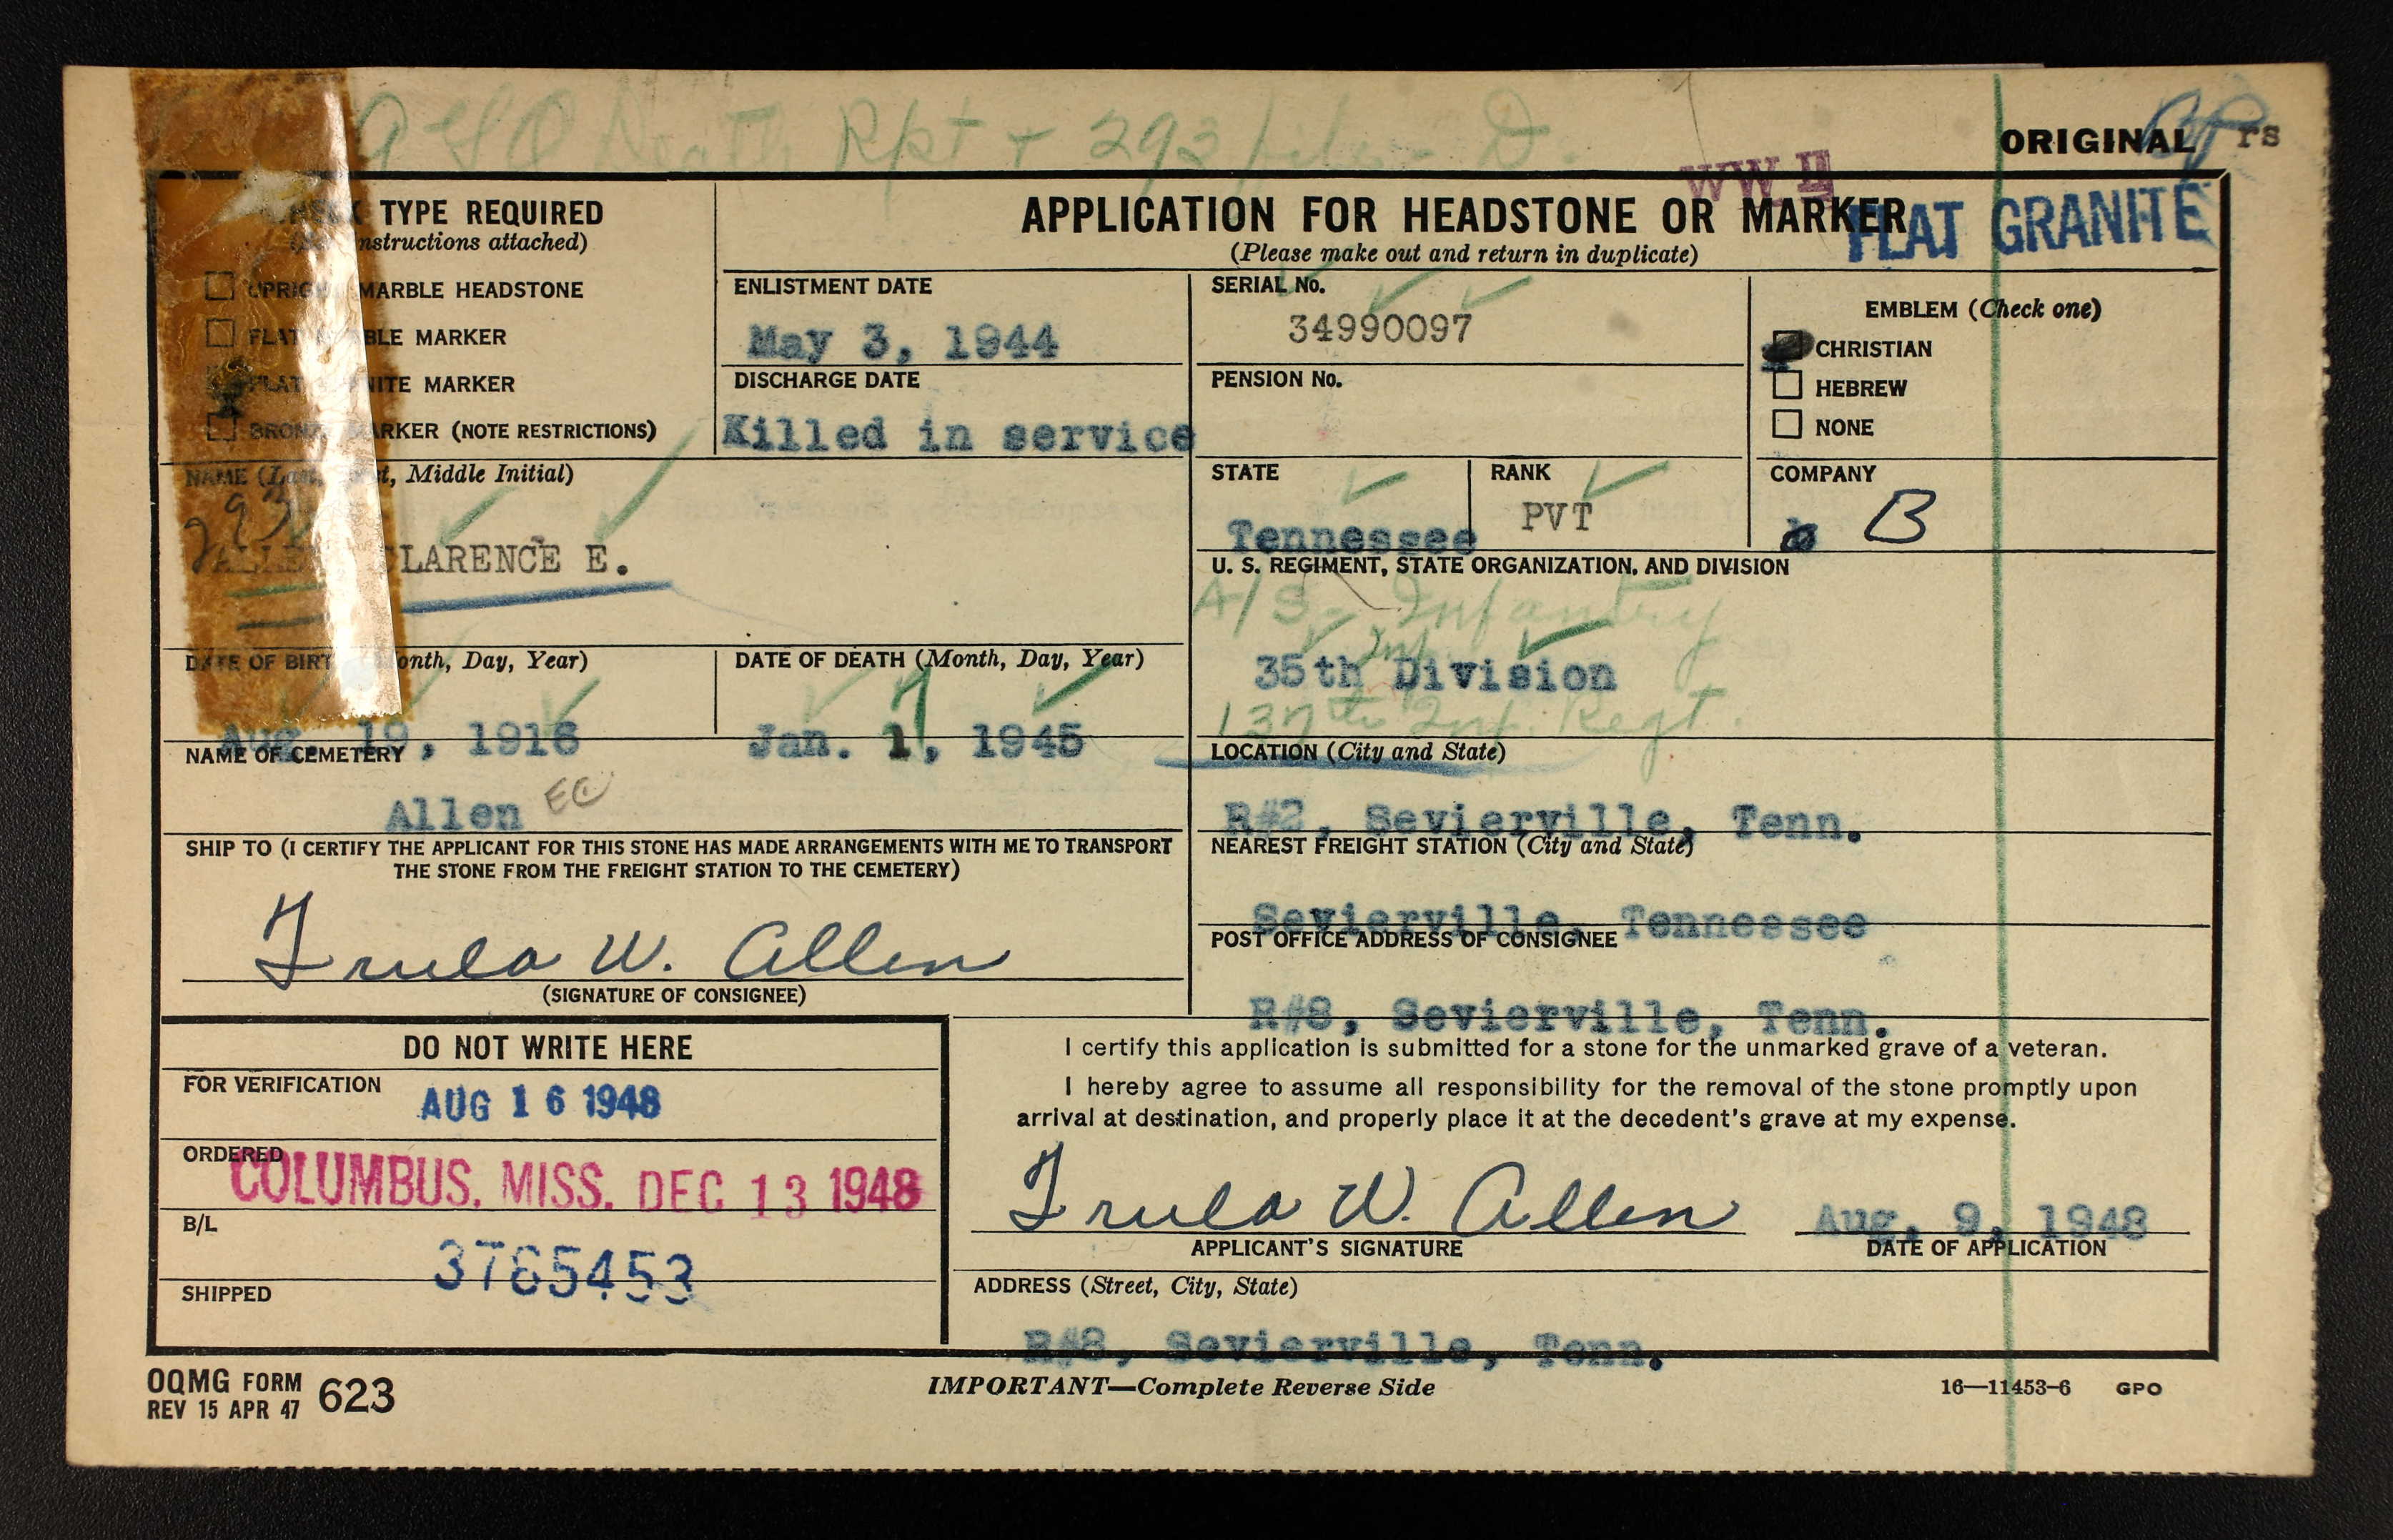 AGO Death Rpt + 293 file - D.
ORIGINAL rs
WW II
CHECK TYPE REQUIRED
(See instructions attached)
UPRIGHT MARBLE HEADSTONE
FLAT MARBLE MARKER
FLAT GRANITE MARKER
BRONZE MARKER (NOTE RESTRICTIONS)
APPLICATION FOR HEADSTONE OR MARKER
(Please make out and return in duplicate)
FLAT GRANITE
ENLISTMENT DATE
May 3, 1944
DISCHARGE DATE
Killed in service
SERIAL No.
34990097
PENSION No.
EMBLEM (Check one)
CHRISTIAN
HEBREW
NONE
NAME (Last, First, Middle Initial)
293
ALLEN CLARENCE E.
STATE
Tennessee
RANK
PVT
COMPANY
B
U. S. REGIMENT, STATE ORGANIZATION, AND DIVISION
A/S - Infantry
Inf.
35th Division
137th Inf. Regt.
DATE OF BIRTH (Month, Day, Year)
Aug. 19, 1916
DATE OF DEATH (Month, Day, Year)
Jan. 1, 1945
NAME OF CEMETERY
Allen EC
LOCATION (City and State)
R#2, Sevierville, Tenn.
SHIP TO (I CERTIFY THE APPLICANT FOR THIS STONE HAS MADE ARRANGEMENTS WITH ME TO TRANSPORT
THE STONE FROM THE FREIGHT STATION TO THE CEMETERY)
Trula W. Allen
(SIGNATURE OF CONSIGNEE)
NEAREST FREIGHT STATION (City and State)
Sevierville, Tennessee
POST OFFICE ADDRESS OF CONSIGNEE
R#8, Sevierville, Tenn.
DO NOT WRITE HERE
FOR VERIFICATION
AUG 16 1948
ORDERED
COLUMBUS, MISS. DEC 13 1948
B/L
3765453
SHIPPED
I certify this application is submitted for a stone for the unmarked grave of a veteran.
I hereby agree to assume all responsibility for the removal of the stone promptly upon
arrival at destination, and properly place it at the decedent's grave at my expense.
Trula W. Allen Aug. 9, 1948
APPLICANT'S SIGNATURE DATE OF APPLICATION
ADDRESS (Street, City, State)
R#8, Sevierville, Tenn.
OQMG FORM 623
REV 15 APR 47
IMPORTANT—Complete Reverse Side
16—11453-6 GPO